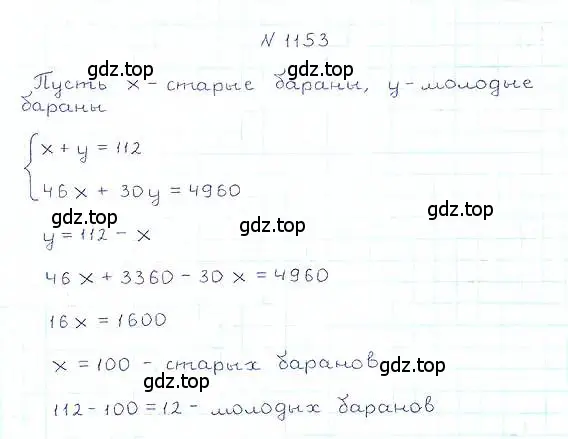 N 1153
gdz.top gdz.top
Пусть x - старые бараны, y - молодые
бараны
x + y = 112
46x + 30y = 4960
gdz.top gdz.top gdz.top
y = 112 - x
46x + 3360 - 30x = 4960
16x = 1600
x = 100 - старых баранов
gdz.top gdz.top
112 - 100 = 12 - молодых баранов